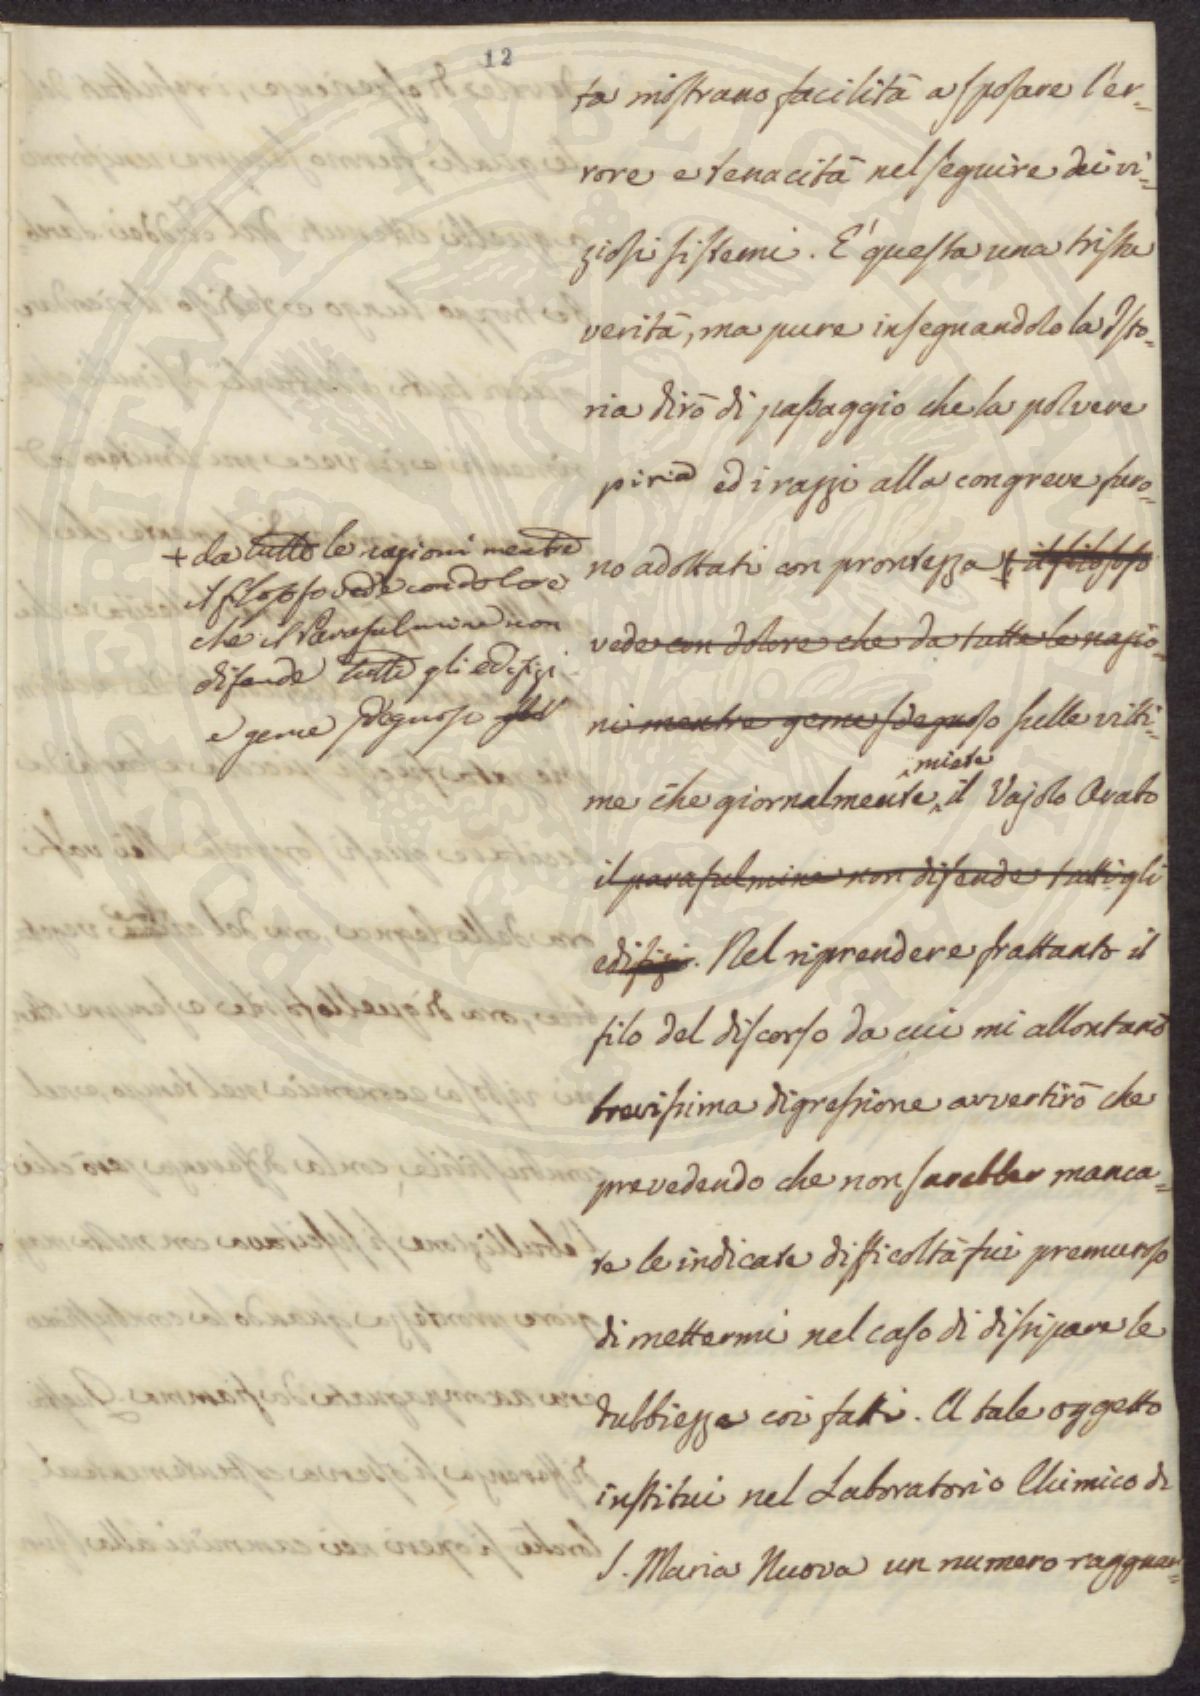 12
ta mostrano facilità a sposare l'er=
rore e tenacità nel seguire dei vi=
ziosi sistemi. E' questa una trista
verità, ma pure insegnandolo la Isto=
ria dirò di passaggio che la polvere
piria ed i razzi alla congreve furo=
no adottati con prontezza + il filosofo
vede con dolore che da tutte le nazio=
ni mentre geme sdegnoso sulle vitti=
me che giornalmente miete il Vajolo Arabo
il parafulmine non difende tutti gli
edifizi. Nel riprendere frattanto il
filo del discorso da cui mi allontanò
brevissima digressione avvertirò che
prevedendo che non sarebber manca=
te le indicate difficoltà fui premuroso
di mettermi nel caso di dissipare le
dubbiezze coi fatti. A tale oggetto
instituii nel Laboratorio Chimico di
S. Maria Nuova un numero ragguar=
+ da tutte le nazioni mentre
il filosofo vede con dolore
che il Parafulmine non
difende tutti gli edifizi
e geme sdegnoso